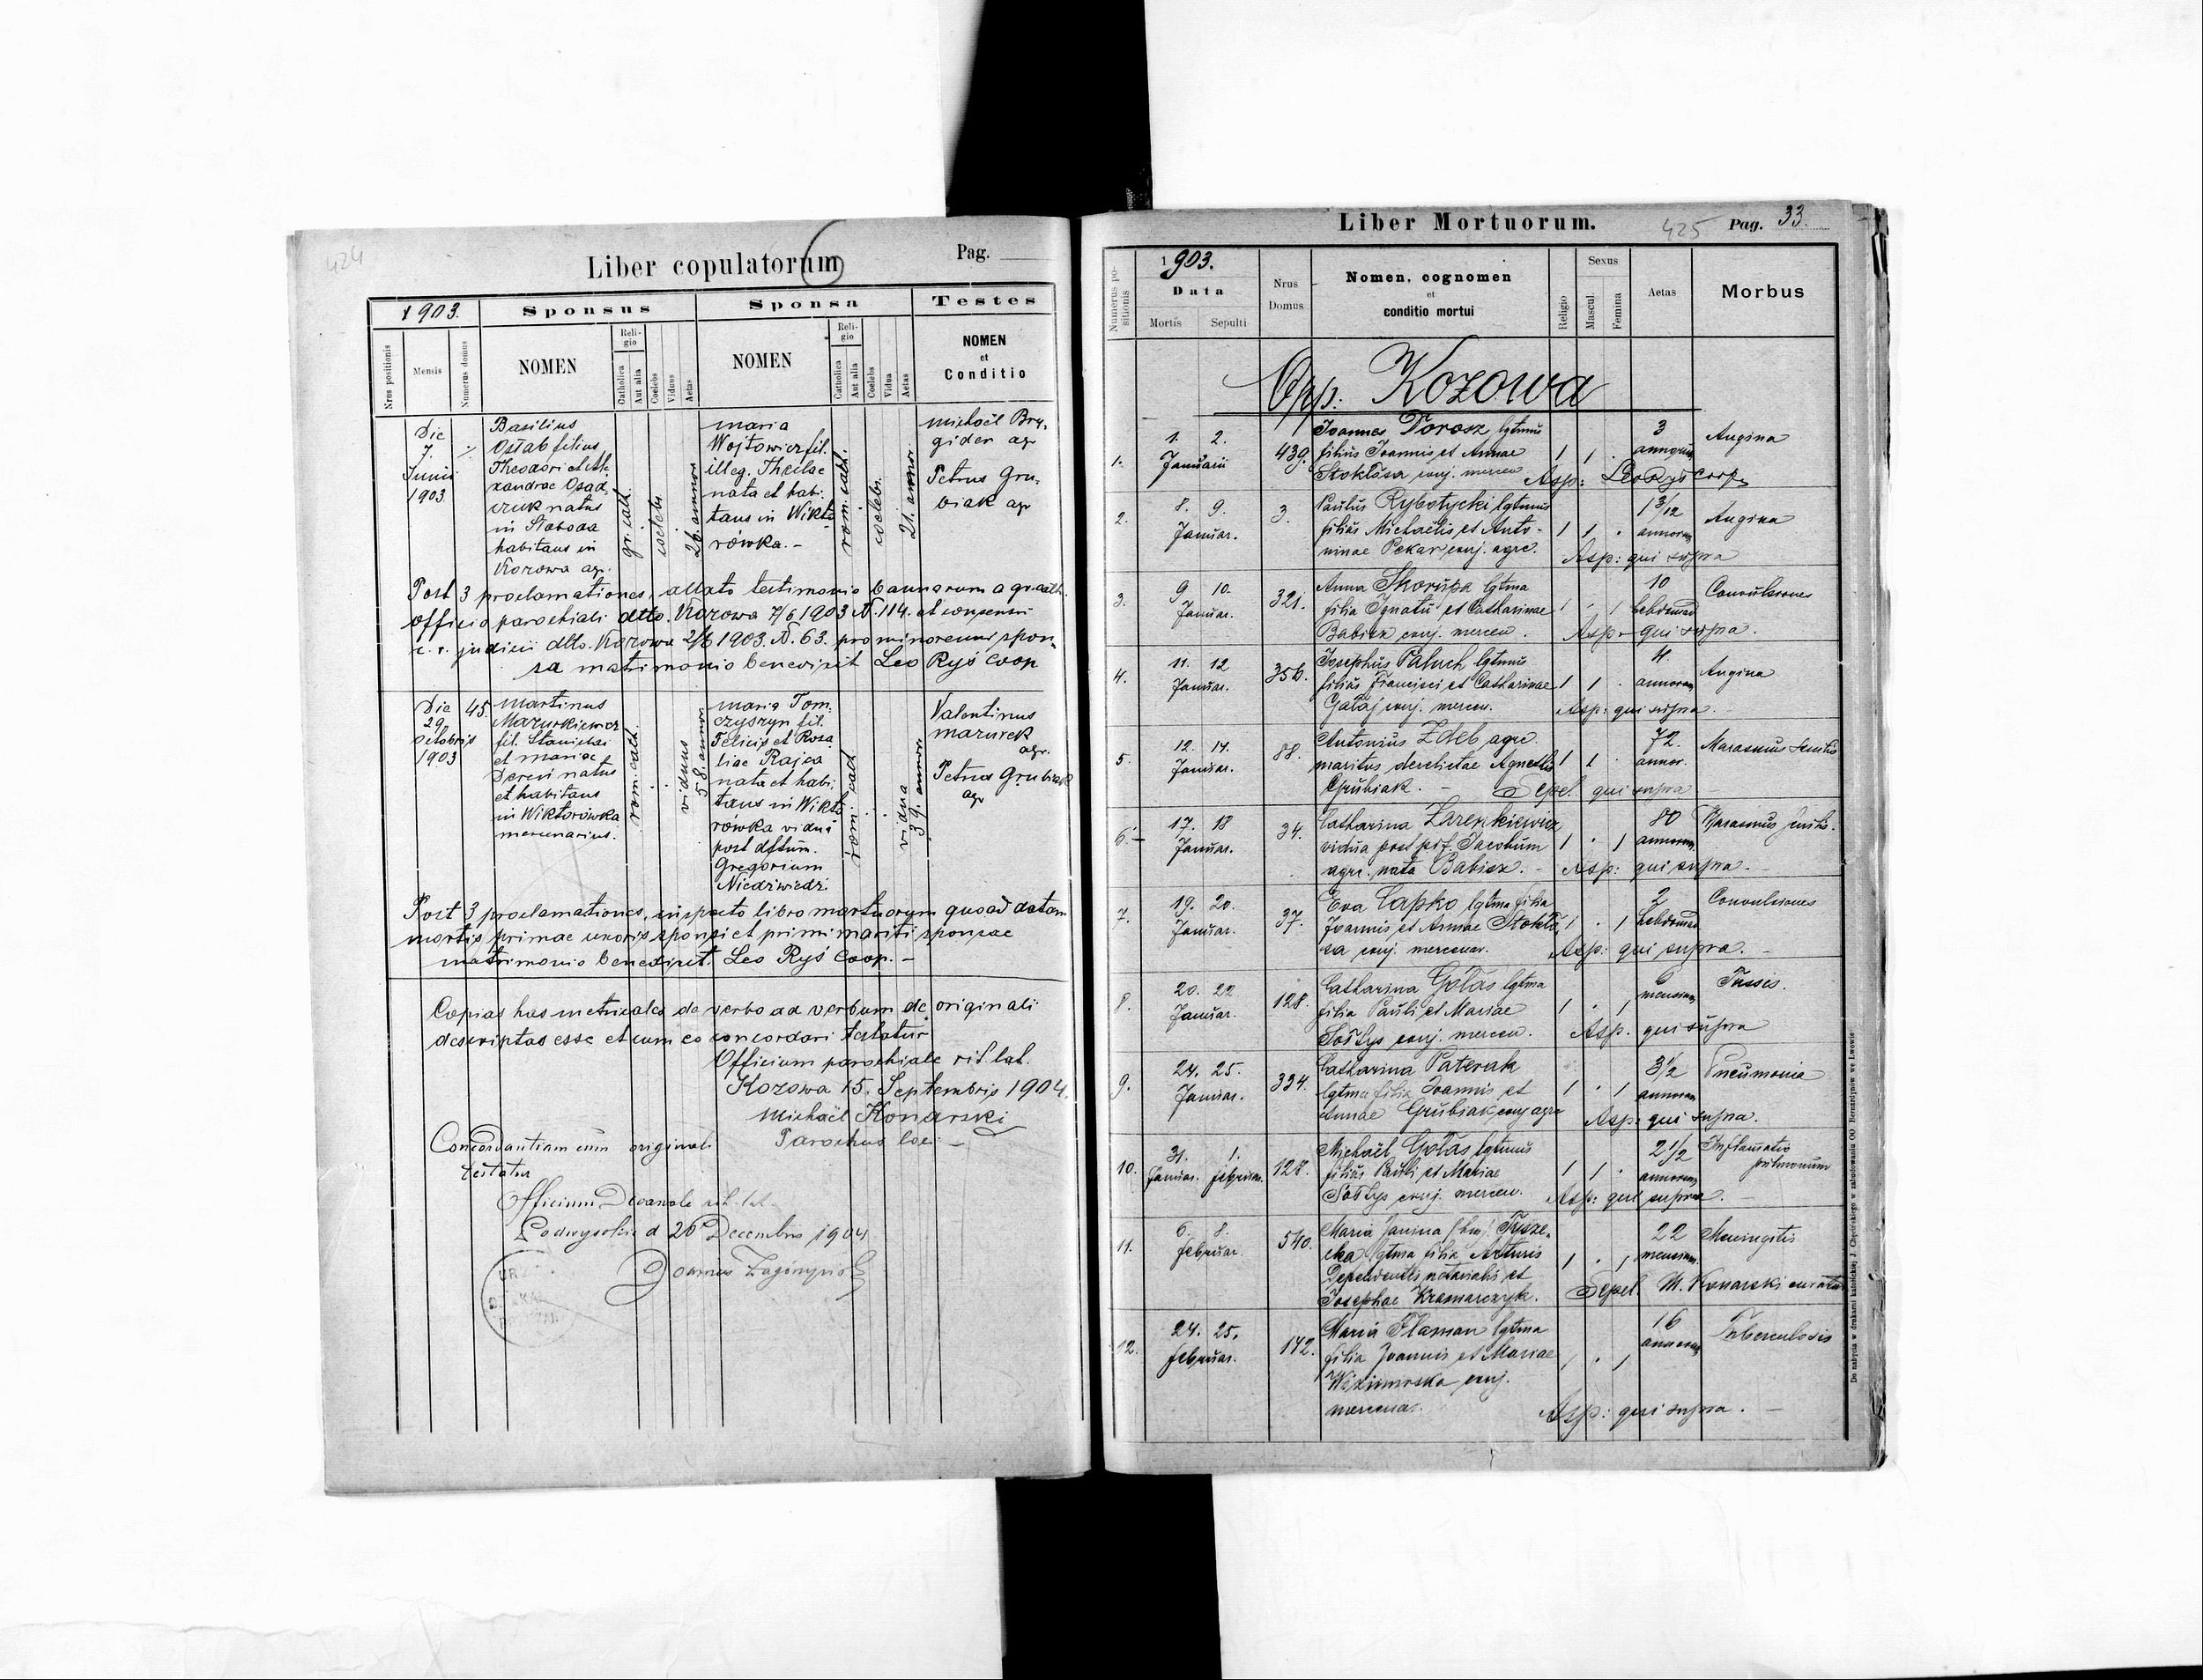 424
Liber copulatorum
Pag.
1903.
Sponsus
Sponsa
Testes
Nrus positionis
Mensis
Numerus domus
NOMEN
Religio
Catholica
Aut alia
Coelebs
Viduus
Aetas
NOMEN
Religio
Catholica
Aut alia
Coelebs
Vidua
Aetas
NOMEN
et
Conditio
Die
7.
Junii
1903
Basilius
Ostab filius
Theodori et Ale
xandrae Osad
czuk natus
in Słoboda
habitans in
Kozowa agr.
gr. cath.
coelebs.
26. annor.
Maria
Wojtowicz fil.
illeg. Theclae
nata et habi
tans in Wikto
rówka. -
rom. cath.
coelebs.
21. annor.
Michaël Bry
gider agr
Petrus Gru
biak agr
Post 3 proclamationes, allato testimonio bannorum a gr. cath.
officio parochiali dtto. Kozowa 7/6 1903 N. 114. et consensu
c. r. judicii dtto. Kozowa 2/6 1903. N. 63. pro minorenni spon
sa matrimonio benedixit Leo Ryś Coop
Die
29.
Octobris
1903
45.
Martinus
Mazurkiewicz
fil. Stanislai
et Mariae
Dereń natus
et habitans
in Wiktorówka
mercenarius.
rom. cath.
viduus
58. annor.
Maria Tom
czyszyn fil.
Felicis et Rosa
liae Rajca
nata et habi
tans in Wikto
rówka vidua
post dftum.
Gregorium
Niedźwiedź.
rom. cath
vidua
39. annor.
Valentinus
Mazurek
agr.
Petrus Grubiak
agr
Post 3 proclamationes, inspecto libro mortuorum quoad datam
mortis primae uxoris sponsi et primi mariti sponsae
matrimonio benedixit. Leo Ryś Coop. -
Copias has metricales de verbo ad verbum de originali
descriptas esse et cum eo concordari testatur
Officium parochiale rit. lat.
Kozowa 15. Septembris 1904.
Michaël Konarski
Parochus loci
Concordantiam cum originali
testatur
Officium Decanale rit. lat.
Podwysokie d 20 Decembris 1904
Liber Mortuorum.
425
Pag. 33
Numerus positionis
1903.
Data
Mortis
Sepulti
Nrus
Domus
Nomen, cognomen
et
conditio mortui
Religio
Sexus
Mascul.
Femina
Aetas
Morbus
Opp. Kozowa
1.
1. 2.
Januarii
439.
Joannes Torosz lgtmus
filius Joannis et Annae
Stokłosa conj. mercen
1 1 .
3
annorum
Angina
Asp: Leo Ryś Coop.
2.
8. 9.
Januar.
3.
Paulus Rybotycki lgtmus
filius Michaelis et Anto-
ninae Pekar conj. agrc.
1 1 .
1 3/12
annorum
Angina
Asp: qui supra
3.
9 10.
Januar.
321.
Anna Skorupa lgtma
filia Ignatii et Catharinae
Babicz conj. mercen.
1 . 1
10
hebdomad
Convulsiones
Asp- qui supra.
4.
11. 12
Januar.
356.
Josephus Paluch lgtmus
filius Francisci et Catharinae
Gałaj conj. mercen.
1 1 .
4.
annorum
Angina
Asp: qui supra.
5.
12. 14.
Januar.
88.
Antonius Zdeb agrc.
maritus derelictae Agnetis
Grubiak. -
1 1 .
72.
annor.
Marasmus senilis
Sepel. qui supra
6.
17. 18
Januar.
34.
Catharina Zarenkiewicz
vidua post pdf. Jacobum
agrc. nata Babicz. -
1 . 1
80
annorum.
Marasmus senilis.
Asp: qui supra. -
7.
19. 20.
Januar.
37.
Eva Capko lgtma filia
Joannis et Annae Stokło
sa conj. mercenar.
1 . 1
2
hebdomad
Convulsiones
Asp: qui supra. -
8.
20. 22
Januar.
128.
Catharina Gołas lgtma
filia Pauli et Mariae
Sołtys conj. mercen.
1 . 1
6
mensium
Tussis.
Asp. qui supra
9.
24. 25.
Januar.
334.
Catharina Paterak
lgtma filia Joannis et
Annae Grubiak conj agrc
1 . 1
3 1/2
annorum
Pneumonia
Asp: qui supra.
10.
31. 1.
Januar. Februar.
128.
Michaël Gołas lgtmus
filius Pauli et Mariae
Sołtys conj. mercen.
1 1 .
2 1/2
annorum
Inflamatio
pulmonum
Asp: qui supra. -
11.
6. 8.
Februar.
540.
Maria Janina Tysze
cka lgtma filia Arturis
Dependentis notarialis et
Josephae Kramarczyk.
1 . 1
22
mensium.
Meningitis
Sepel. M. Konarski curatus
12.
24. 25.
Februar.
142.
Maria Flaman lgtma
filia Joannis et Mariae
conj.
mercenar.
1 . 1
16
annorum
Tuberculosis
Asp: qui supra. -
Do nabycia w drukarni katolickiej J. Chęcińskiego w zabudowaniu OO. Bernardynów we Lwowie